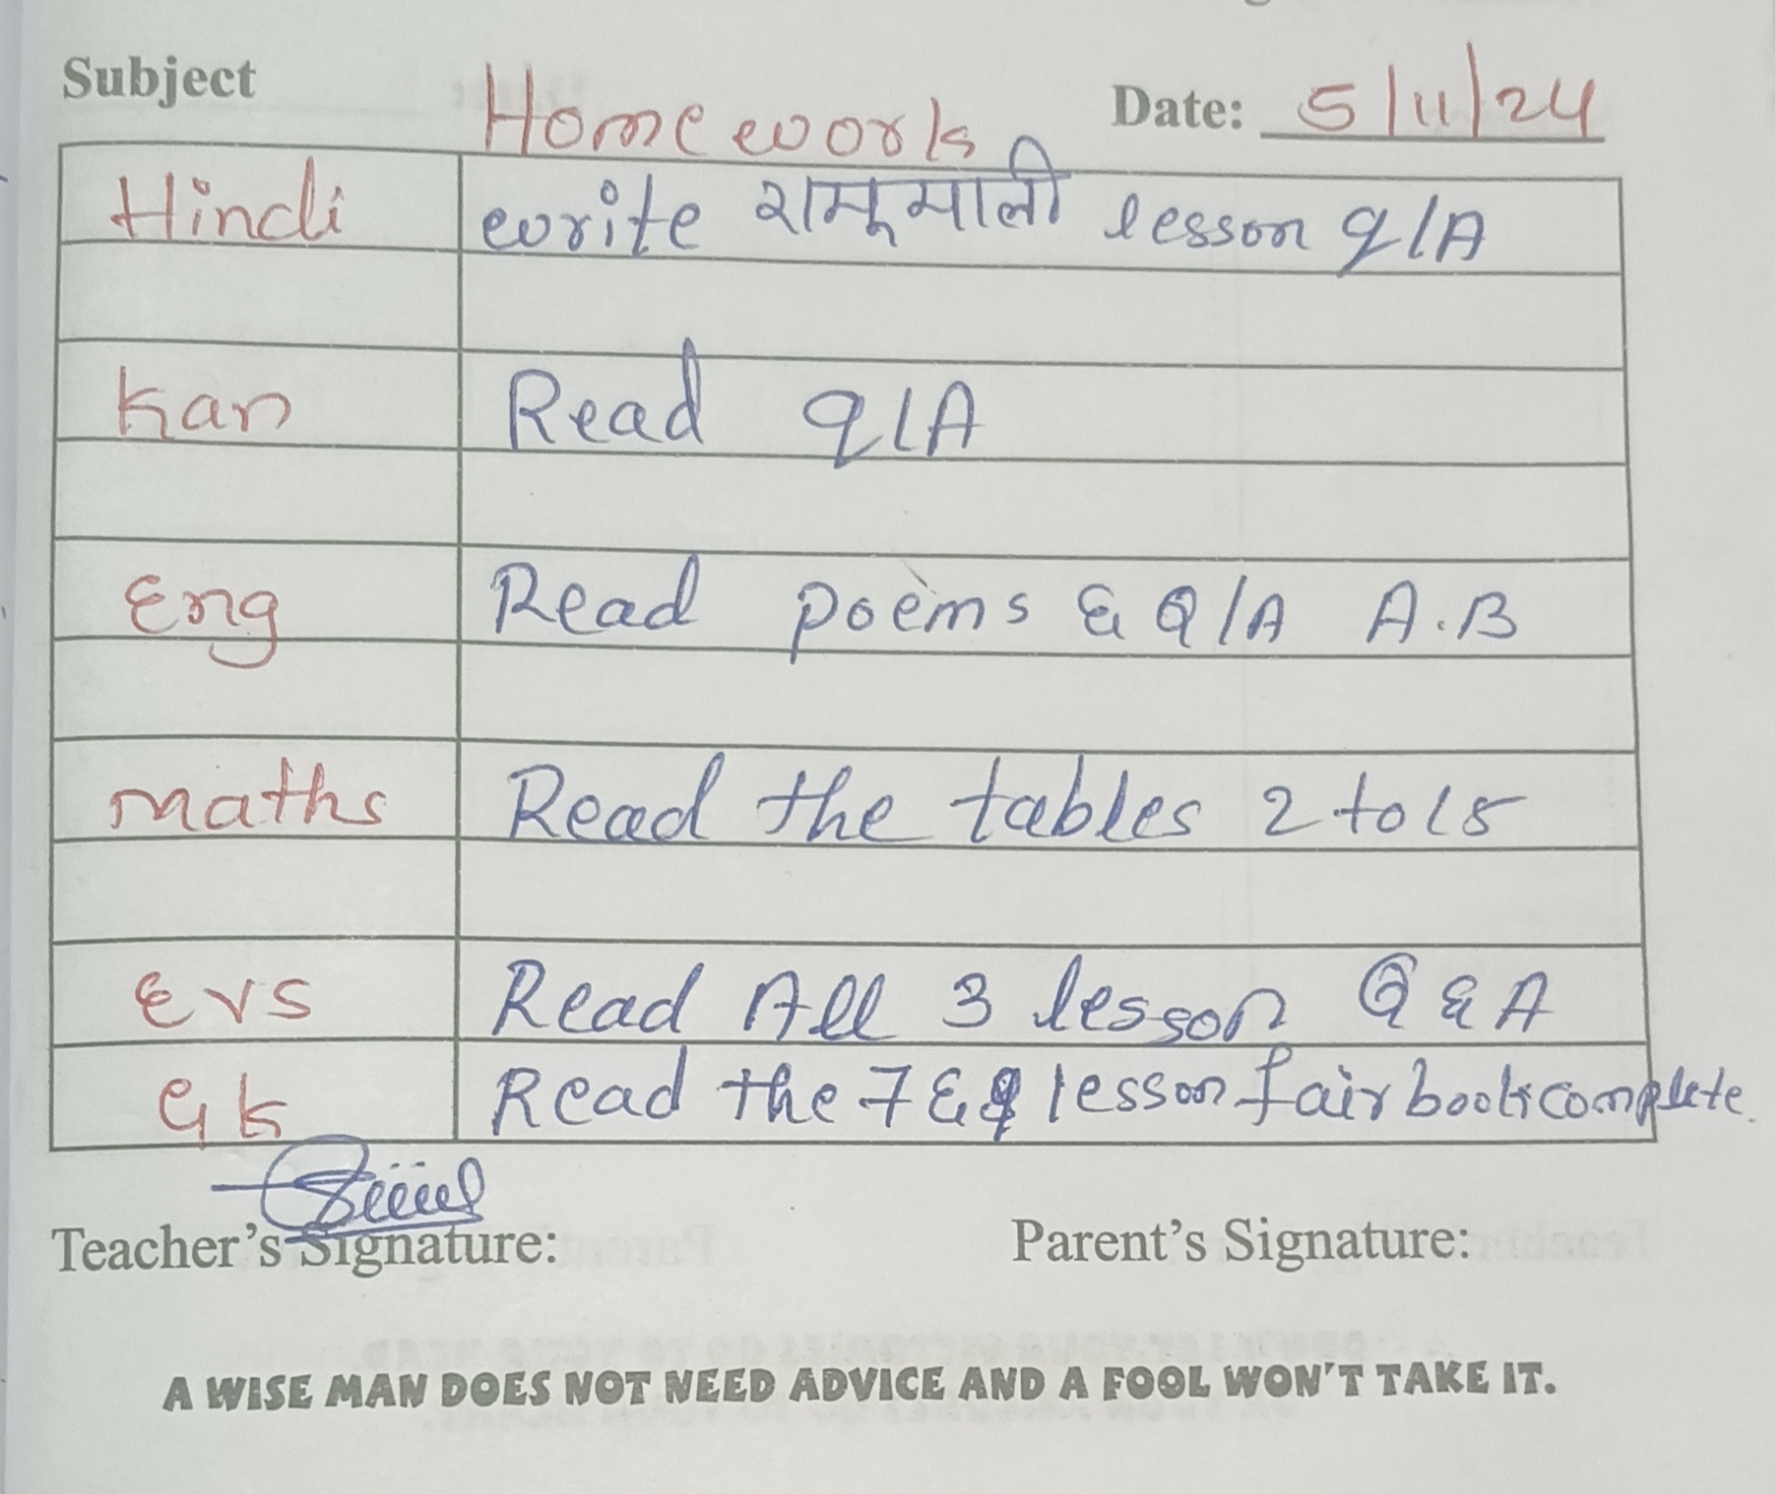 Subject Homework Date: 5/11/24
Hindi write रामू माली lesson q/A
Kan Read q/A
Eng Read poems & Q/A A.B
maths Read the tables 2 to 15
EVS Read All 3 lesson Q & A
GK Read the 7 & lesson fair book complete.
Teacher's Signature: Parent's Signature:
A WISE MAN DOES NOT NEED ADVICE AND A FOOL WON'T TAKE IT.